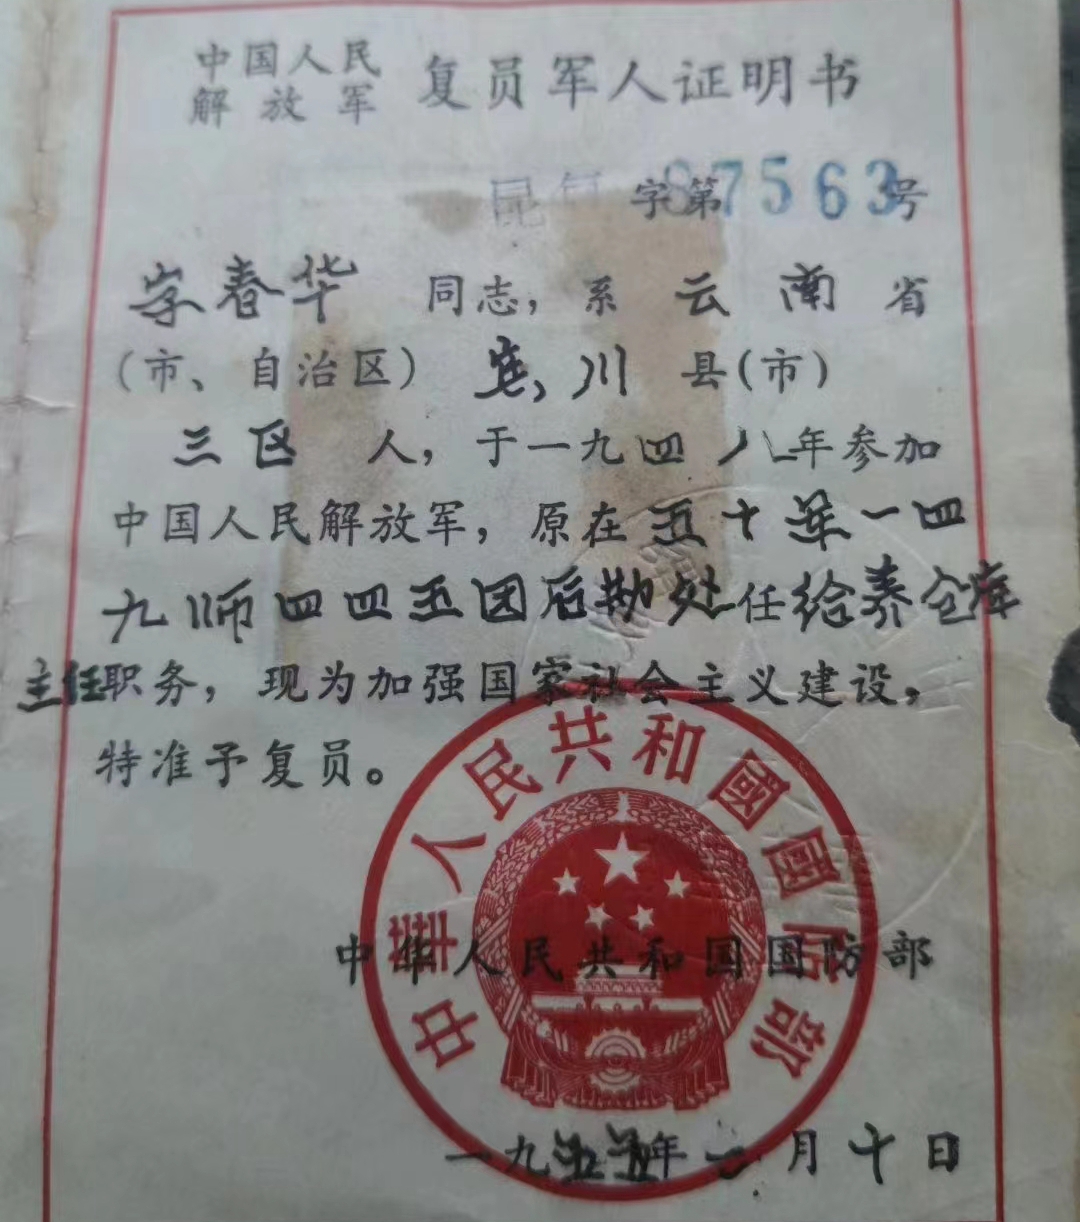 中国人民
解放军 复员军人证明书
昆 字第87563号
字春华 同志，系 云南 省
（市、自治区） 宾川 县（市）
三区 人，于一九四八年参加
中国人民解放军，原在五十军一四
九师四四五团后勤处任给养仓库
主任职务，现为加强国家社会主义建设，
特准予复员。
中華人民共和國國防部
中华人民共和国国防部
一九五五年 月十日